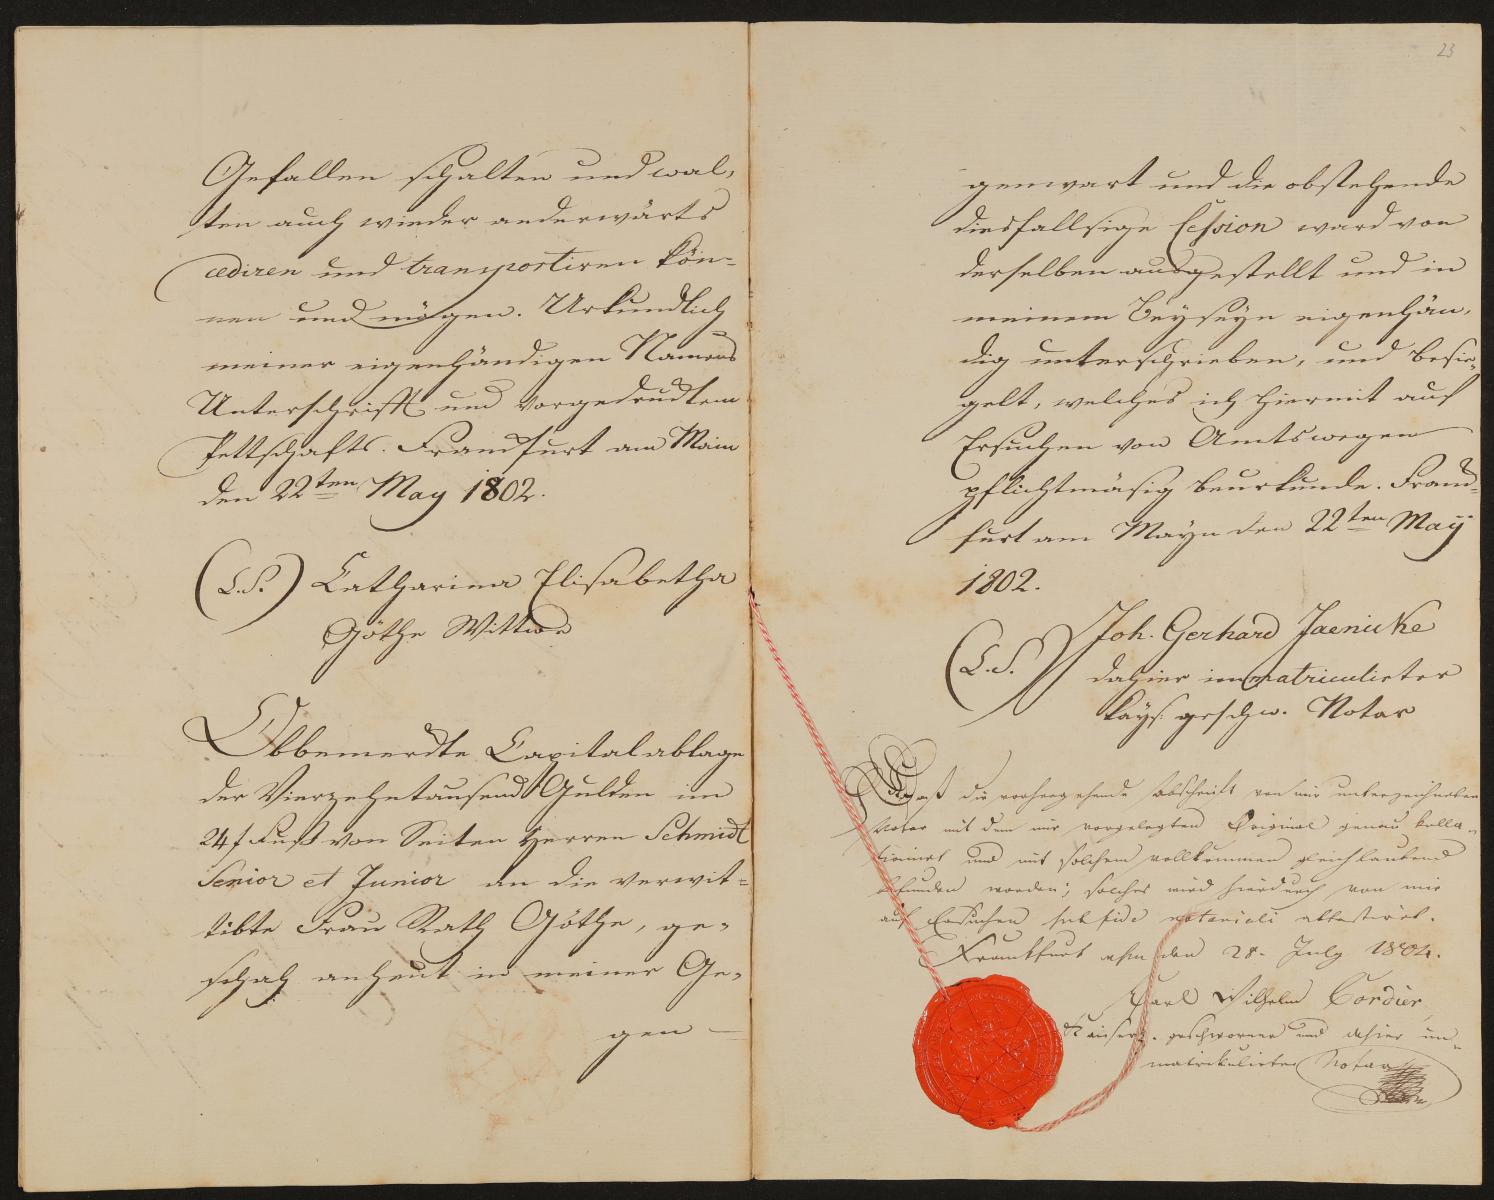 Gefallen schalten und wal-
ten auch wieder anderwärts
cediren und transportiren kön-
nen und mögen. Urkundlich
meiner eigenhändigen Namens
Unterschrifft und vorgedrucktem
Pettschafts. Franckfurt am Main
den 22ten May 1802.
(L.S.) Catharina Elisabetha
Göthe Wittwe
Obbemerckte Capitalablage
der Vierzehntausend Gulden im
24 f Fuß von Seiten Herren Schmidt
Senior et Junior an die verwit-
tibte Frau Rath Göthe, ge-
schah anheut in meiner Ge-
gen-
23
genwart und die obstehende
diesfallsige Cession ward von
derselben ausgestellt und in
meinem Beyseyn eigenhän-
dig unterschrieben, und besie-
gelt, welches ich hiermit auf
Ersuchen von Amtswegen
pflichtmäsig beurkunde. Franck-
furt am Mayn den 22ten May
1802.
(L.S.) Joh. Gerhard Jaenicke
dahier immatriculirter
Kays. geschw. Notar
Daß die vorhergehende Abschrifft von mir unterzeichneten
Notar mit dem mir vorgelegten Original genau kolla-
tionirt und mit solchem vollkommen gleichlautend
befunden worden; solches wird hierdurch von mir
auf Ersuchen sub fide notariali attestirt.
Frankfurt den 28. July 1804.
Karl Wilhelm Cordier,
Kaiserl. geschworner und dahier im-
matrikulirter Notar